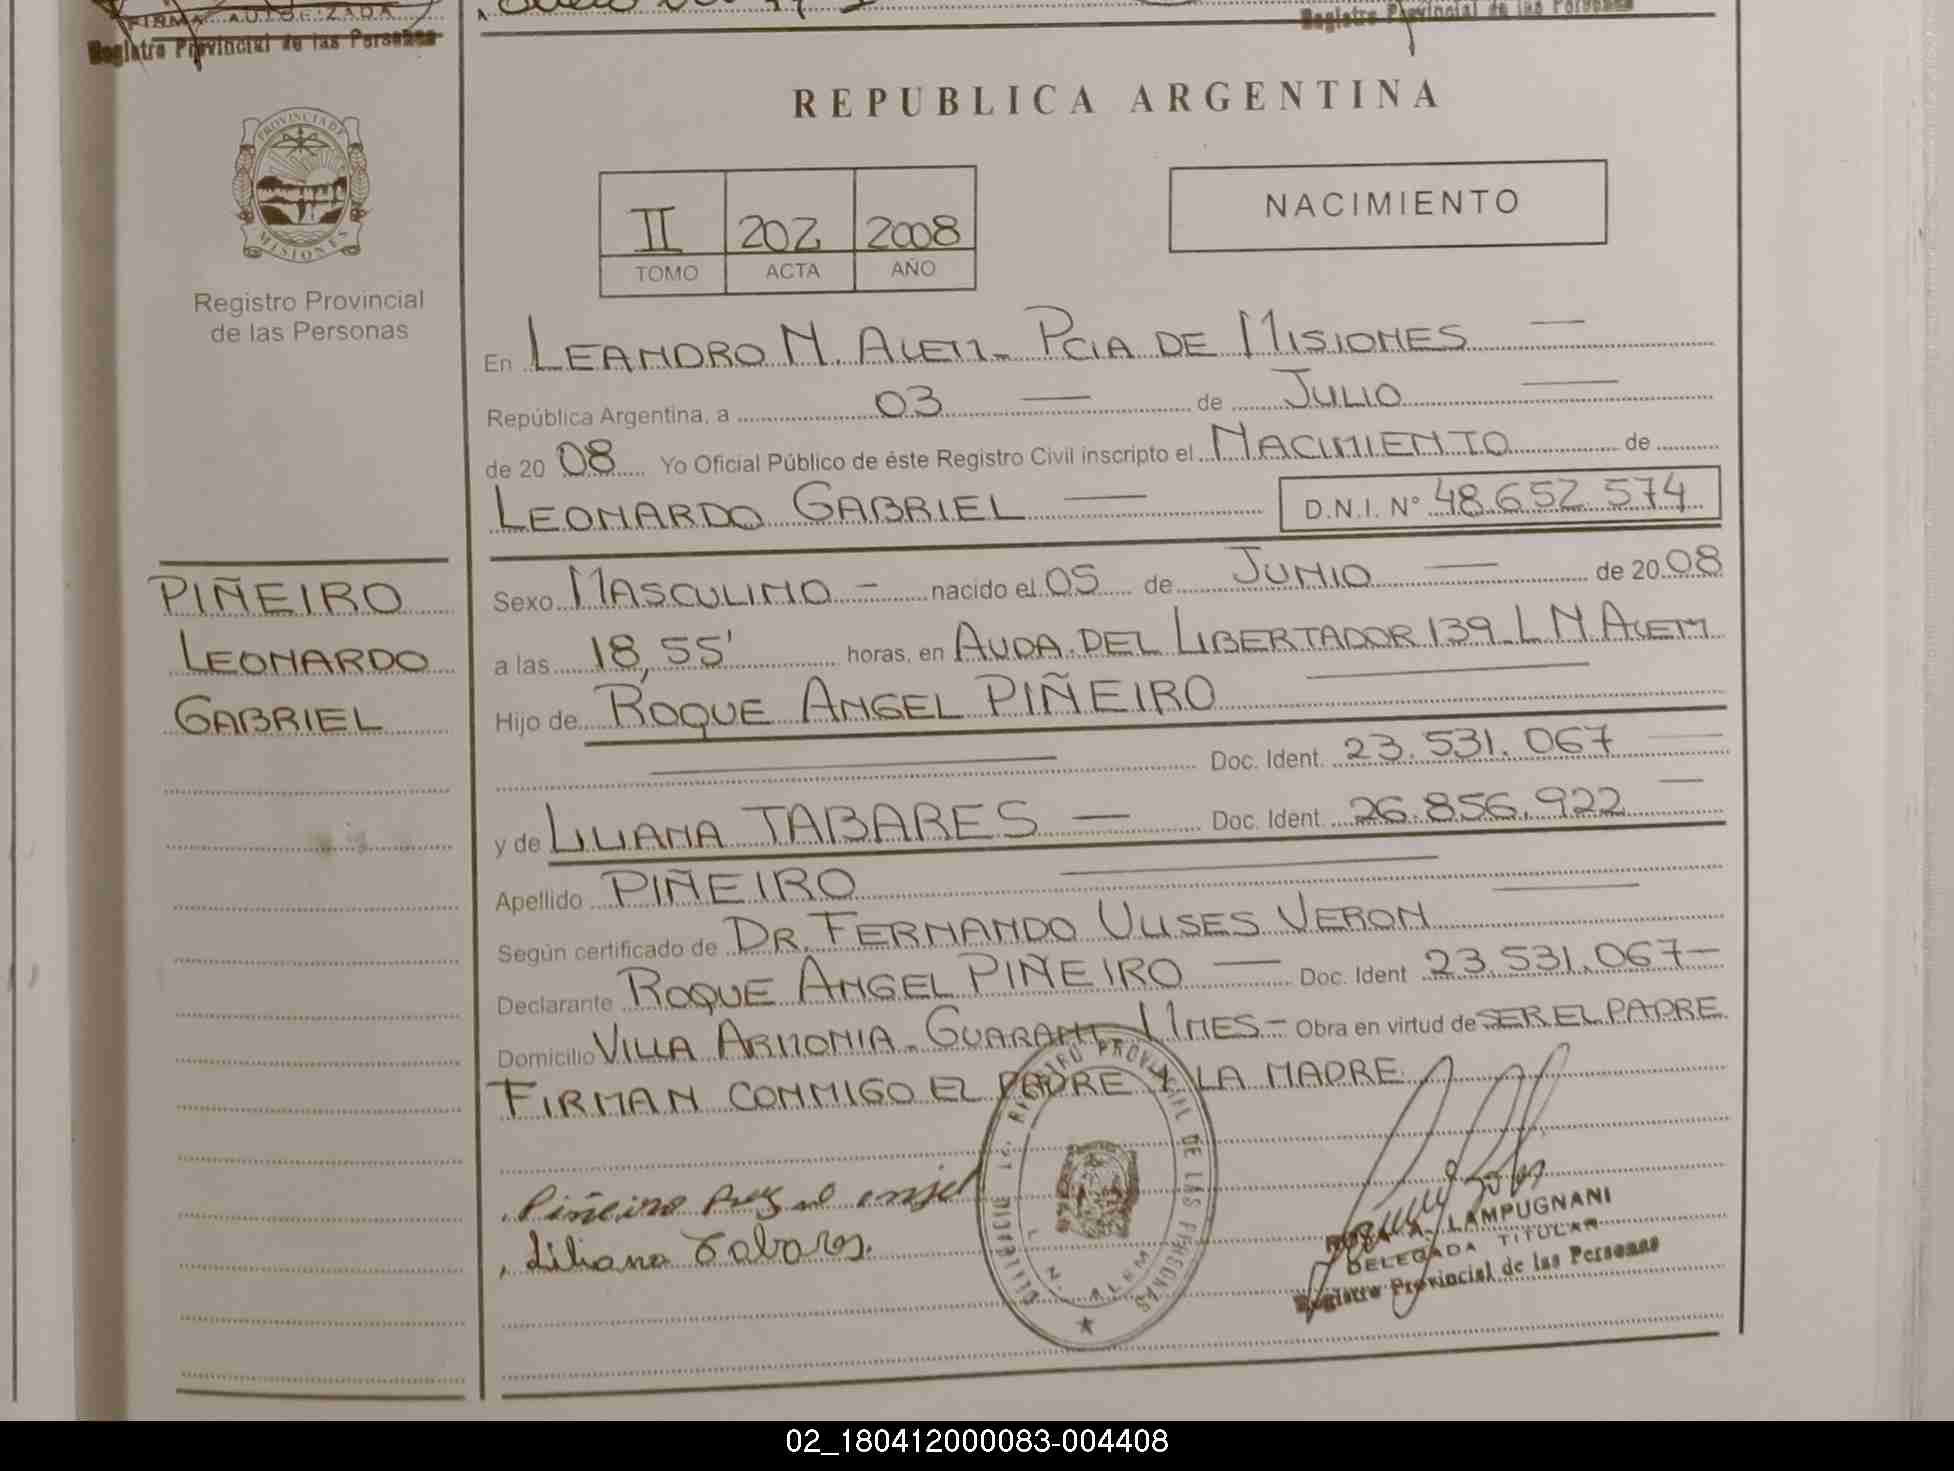 FIRMA AUTORIZADA
Registro Provincial de las Personas
Registro Provincial de las Personas
PROVINCIA DE
MISIONES
Registro Provincial
de las Personas
PIÑEIRO
LEONARDO
GABRIEL
REPUBLICA ARGENTINA
II 202 2008
TOMO ACTA AÑO
NACIMIENTO
En LEANDRO N. ALEM - PCIA DE MISIONES —
República Argentina, a 03 — de JULIO —
de 20 08 Yo Oficial Público de éste Registro Civil inscripto el NACIMIENTO de
LEONARDO GABRIEL — D.N.I. N° 48.652.574
Sexo MASCULINO - nacido el 05 de JUNIO — de 20 08
a las 18,55' horas, en AVDA. DEL LIBERTADOR 139 - L N ALEM
Hijo de ROQUE ANGEL PIÑEIRO —
— Doc. Ident. 23.531.067 —
y de LILIANA TABARES — Doc. Ident. 26.856.922 —
Apellido PIÑEIRO —
Según certificado de DR. FERNANDO ULISES VERON —
Declarante ROQUE ANGEL PIÑEIRO — Doc. Ident 23.531.067 —
Domicilio VILLA ARMONIA - GUARANI MNES - Obra en virtud de SER EL PADRE
FIRMAN CONMIGO EL PADRE Y LA MADRE
Piñeiro
Liliana Tabares.
REGISTRO PROVINCIAL DE LAS PERSONAS
L. N. ALEM
A. LAMPUGNANI
DELEGADA TITULAR
Registro Provincial de las Personas
02_180412000083-004408